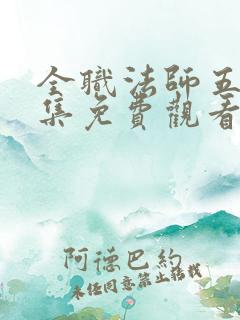 全職法師五
集免費觀看
阿德巴約
未經同意禁止搭載